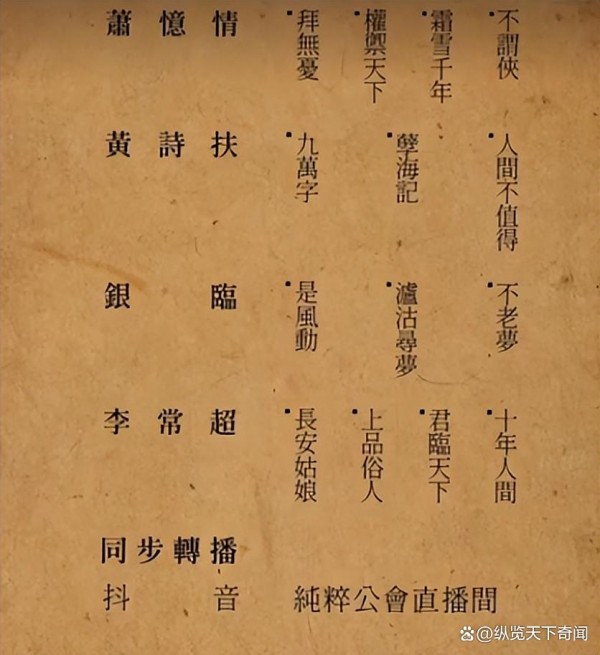 蕭憶情
拜無憂
權禦天下
霜雪千年
不謂俠
黃詩扶
九萬字
孽海記
人間不值得
銀臨
是風動
瀘沽尋夢
不老夢
李常超
長安姑娘
上品俗人
君臨天下
十年人間
同步轉播
抖音
純粹公會直播間
@纵览天下奇闻